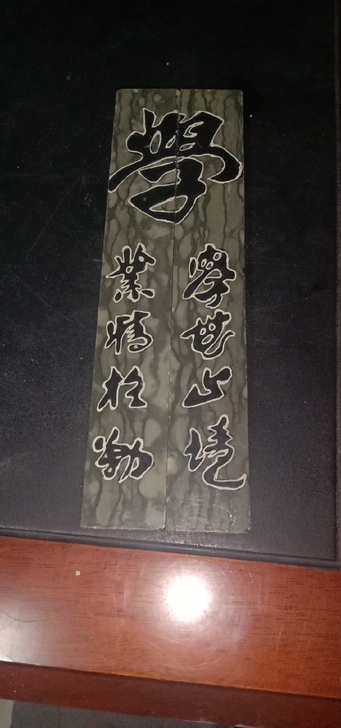 學
學無止境
業精於勤